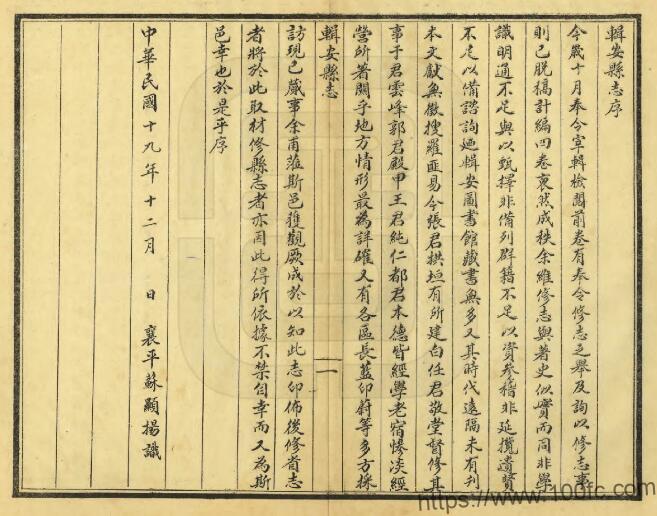 輯安縣志序
今歲十月奉令宰輯檢閱前卷有奉令修志之舉及詢以修志事
則已脫稿計編四卷裒然成秩余維修志與著史似實而同非學
識明通不足與以甄擇非備列群籍不足以資參稽非延攬遺賢
不足以備諮詢廼輯安圖書館藏書無多又其時代遠隔未有刊
本文獻無徵搜羅匪易今張君拱垣有所建白任君敬堂督修其
事于君雲峰郭君殿甲王君純仁都君本德皆經學老宿慘淡經
營所著關乎地方情形最為詳確又有各區長藍印蔚等多方採
輯安縣志
一
訪現已蕆事余甫蒞斯邑獲觀厥成於以知此志印佈後修省志
者將於此取材修縣志者亦因此得所依據不禁自幸而又為斯
邑幸也於是乎序
中華民國十九年十二月 日 襄平蘇顯揚識
https://www.100fc.com